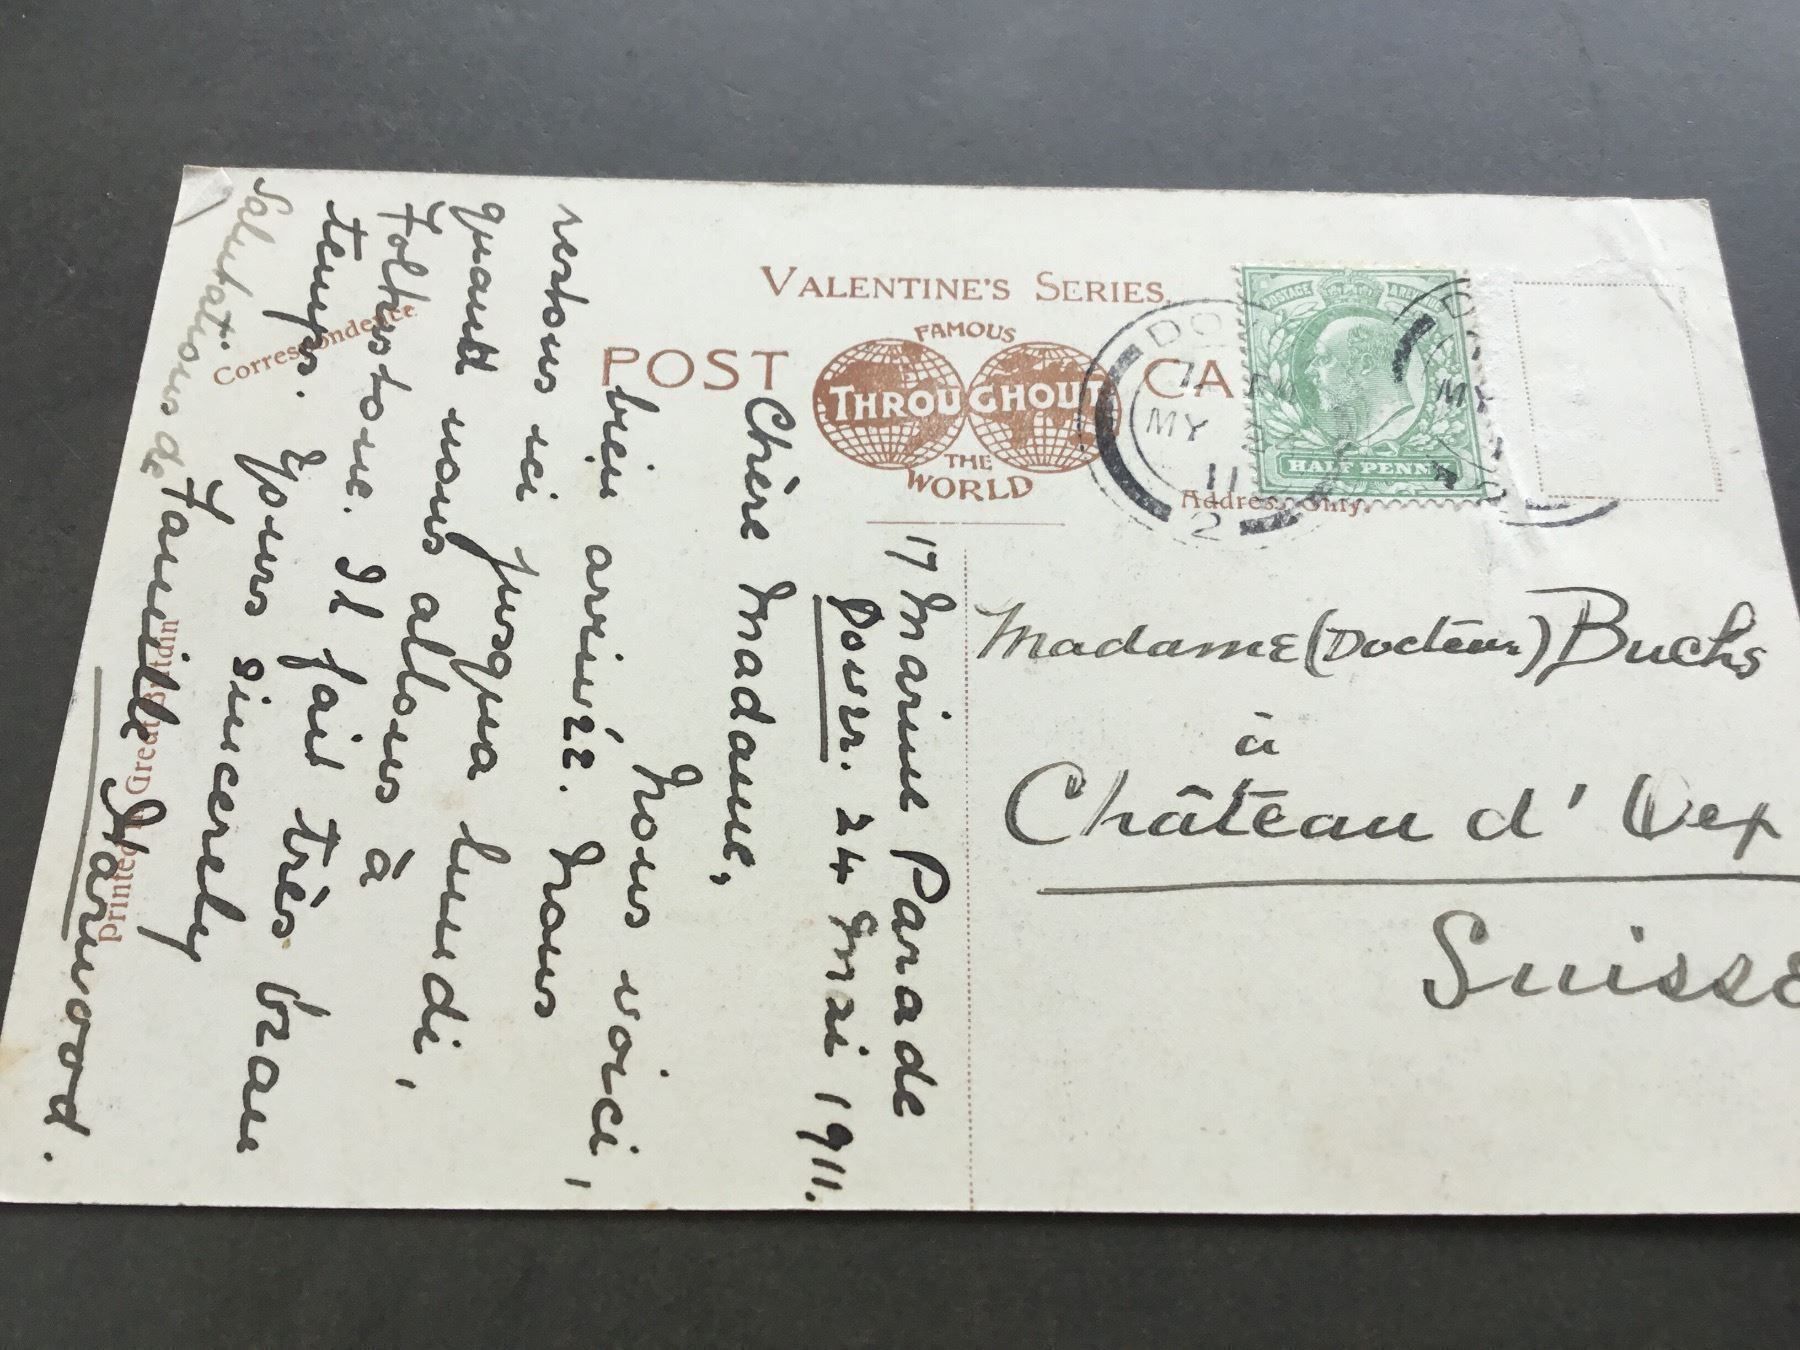 VALENTINE'S SERIES.
FAMOUS
POST CA
THROUGHOUT
THE
WORLD
POSTAGE
HALF PENNY
MY
11
2
MY
Correspondence
Address Only.
Printed Great Britain
17 Marine Parade
Dover. 24 Mai 1911.
Chère Madame,
Nous voici,
bien arrivéz. Nous
restons ici jusqua lundi,
quand nous allons à
Folkestone. Il fait très beau
temps. Yours sincerely
Salutations de Famille Harwood.
Madame (Docteur) Buchs
à
Château d'Oex
Suisse